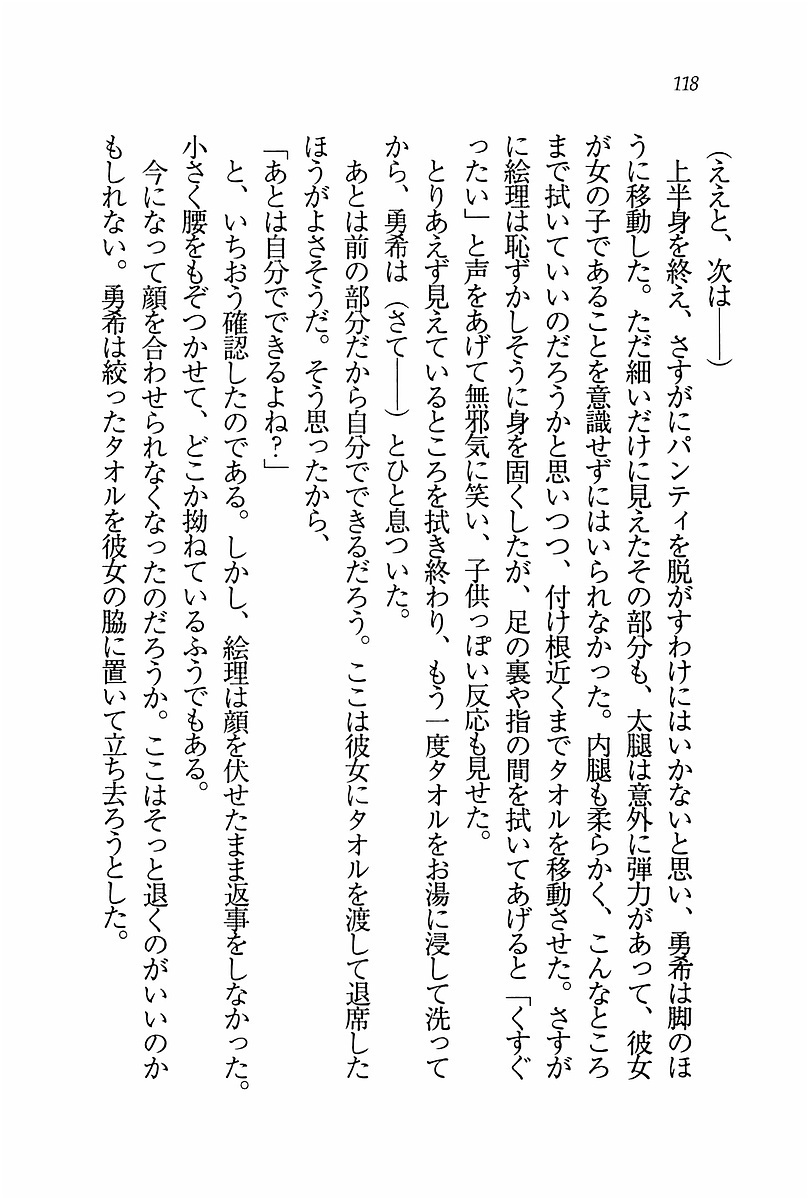 118
（ええと、次は――）
　上半身を終え、さすがにパンティを脱がすわけにはいかないと思い、勇希は脚のほ
うに移動した。ただ細いだけに見えたその部分も、太腿は意外に弾力があって、彼女
が女の子であることを意識せずにはいられなかった。内腿も柔らかく、こんなところ
まで拭いていいのだろうかと思いつつ、付け根近くまでタオルを移動させた。さすが
に絵理は恥ずかしそうに身を固くしたが、足の裏や指の間を拭いてあげると「くすぐ
ったい」と声をあげて無邪気に笑い、子供っぽい反応も見せた。
　とりあえず見えているところを拭き終わり、もう一度タオルをお湯に浸して洗って
から、勇希は（さて――）とひと息ついた。
　あとは前の部分だから自分でできるだろう。ここは彼女にタオルを渡して退席した
ほうがよさそうだ。そう思ったから、
「あとは自分でできるよね？」
　と、いちおう確認したのである。しかし、絵理は顔を伏せたまま返事をしなかった。
小さく腰をもぞつかせて、どこか拗ねているふうでもある。
　今になって顔を合わせられなくなったのだろうか。ここはそっと退くのがいいのか
もしれない。勇希は絞ったタオルを彼女の脇に置いて立ち去ろうとした。